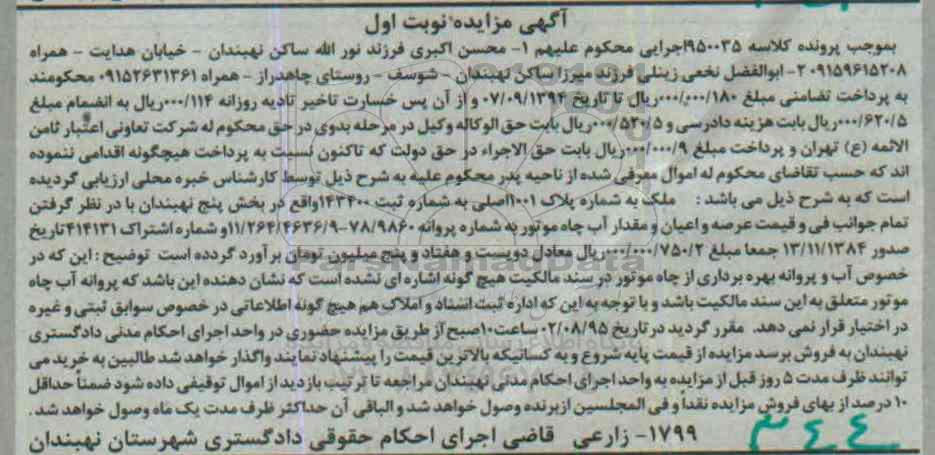 آگهی مزایده نوبت اول
بموجب پرونده کلاسه ۹۵۰۰۳۵اجرایی محکوم علیهم ۱- محسن اکبری فرزند نور الله ساکن نهبندان - خیابان هدایت - همراه
۰۹۱۵۹۶۱۵۲۰۸ ۲- ابوالفضل نخعی زینلی فرزند میرزا ساکن نهبندان - شوسف - روستای چاهدراز - همراه ۰۹۱۵۲۶۳۱۳۶۱ محکومند
به پرداخت تضامنی مبلغ ۰۰۰/۰۰۰/۱۸۰ریال تا تاریخ ۰۷/۰۹/۱۳۹۴ و از آن پس خسارت تاخیر تادیه روزانه ۰۰۰/۱۱۴ریال به انضمام مبلغ
۰۰۰/۶۲۰/۵ریال بابت هزینه دادرسی و ۰۰۰/۵۲۰/۵ریال بابت حق الوکاله وکیل در مرحله بدوی در حق محکوم له شرکت تعاونی اعتبار ثامن
الائمه (ع) تهران و پرداخت مبلغ ۰۰۰/۰۰۰/۹ریال بابت حق الاجراء در حق دولت که تاکنون نسبت به پرداخت هیچگونه اقدامی ننموده
اند که حسب تقاضای محکوم له اموال معرفی شده از ناحیه پدر محکوم علیه به شرح ذیل توسط کارشناس خبره محلی ارزیابی گردیده
است که به شرح ذیل می باشد : ملک به شماره پلاک ۱۰۰۱اصلی به شماره ثبت ۱۴۳۴۰۰واقع در بخش پنج نهبندان با در نظر گرفتن
تمام جوانب فی و قیمت عرصه و اعیان و مقدار آب چاه موتور به شماره پروانه ۱۱/۲۶۴/۴۶۳۶/۹-۷۸/۹۸۶۰و شماره اشتراک ۴۱۴۱۳۱تاریخ
صدور ۱۳/۱۱/۱۳۸۴ جمعا مبلغ ۰۰۰/۰۰۰/۷۵۰/۲ریال معادل دویست و هفتاد و پنج میلیون تومان برآورد گردده است توضیح : این که در
خصوص آب و پروانه بهره برداری از چاه موتور در سند مالکیت هیچ گونه اشاره ای نشده است که نشان دهنده این باشد که پروانه آب چاه
موتور متعلق به این سند مالکیت باشد و با توجه به این که اداره ثبت اسناد و املاک هم هیچ گونه اطلاعاتی در خصوص سوابق ثبتی و غیره
در اختیار قرار نمی دهد. مقرر گردید در تاریخ ۰۲/۰۸/۹۵ ساعت۱۰صبح از طریق مزایده حضوری در واحد اجرای احکام مدنی دادگستری
نهبندان به فروش برسد مزایده از قیمت پایه شروع و به کسانیکه بالاترین قیمت را پیشنهاد نمایند واگذار خواهد شد طالبین به خرید می
توانند ظرف مدت ۵ روز قبل از مزایده به واحد اجرای احکام مدنی نهبندان مراجعه تا ترتیب بازدید از اموال توقیفی داده شود ضمناً حداقل
۱۰ درصد از بهای فروش مزایده نقداً و فی المجلسین ازبرنده وصول خواهد شد و الباقی آن حداکثر ظرف مدت یک ماه وصول خواهد شد.
۱۷۹۹- زارعی قاضی اجرای احکام حقوقی دادگستری شهرستان نهبندان
۳۴۴